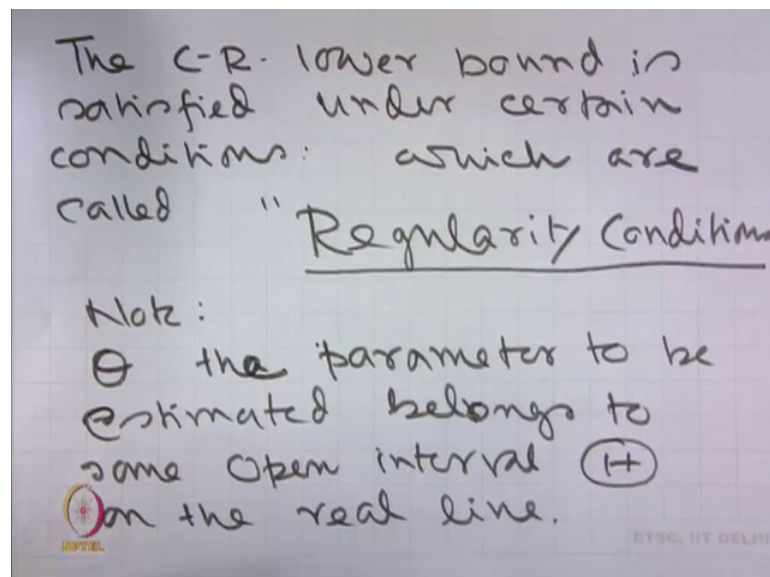 The C-R. lower bound is
satisfied under certain
conditions: which are
called "Regularity Condition
Note:
θ the parameter to be
estimated belongs to
some open interval Ⓗ
on the real line.
NPTEL
ETSC, IIT DELHI